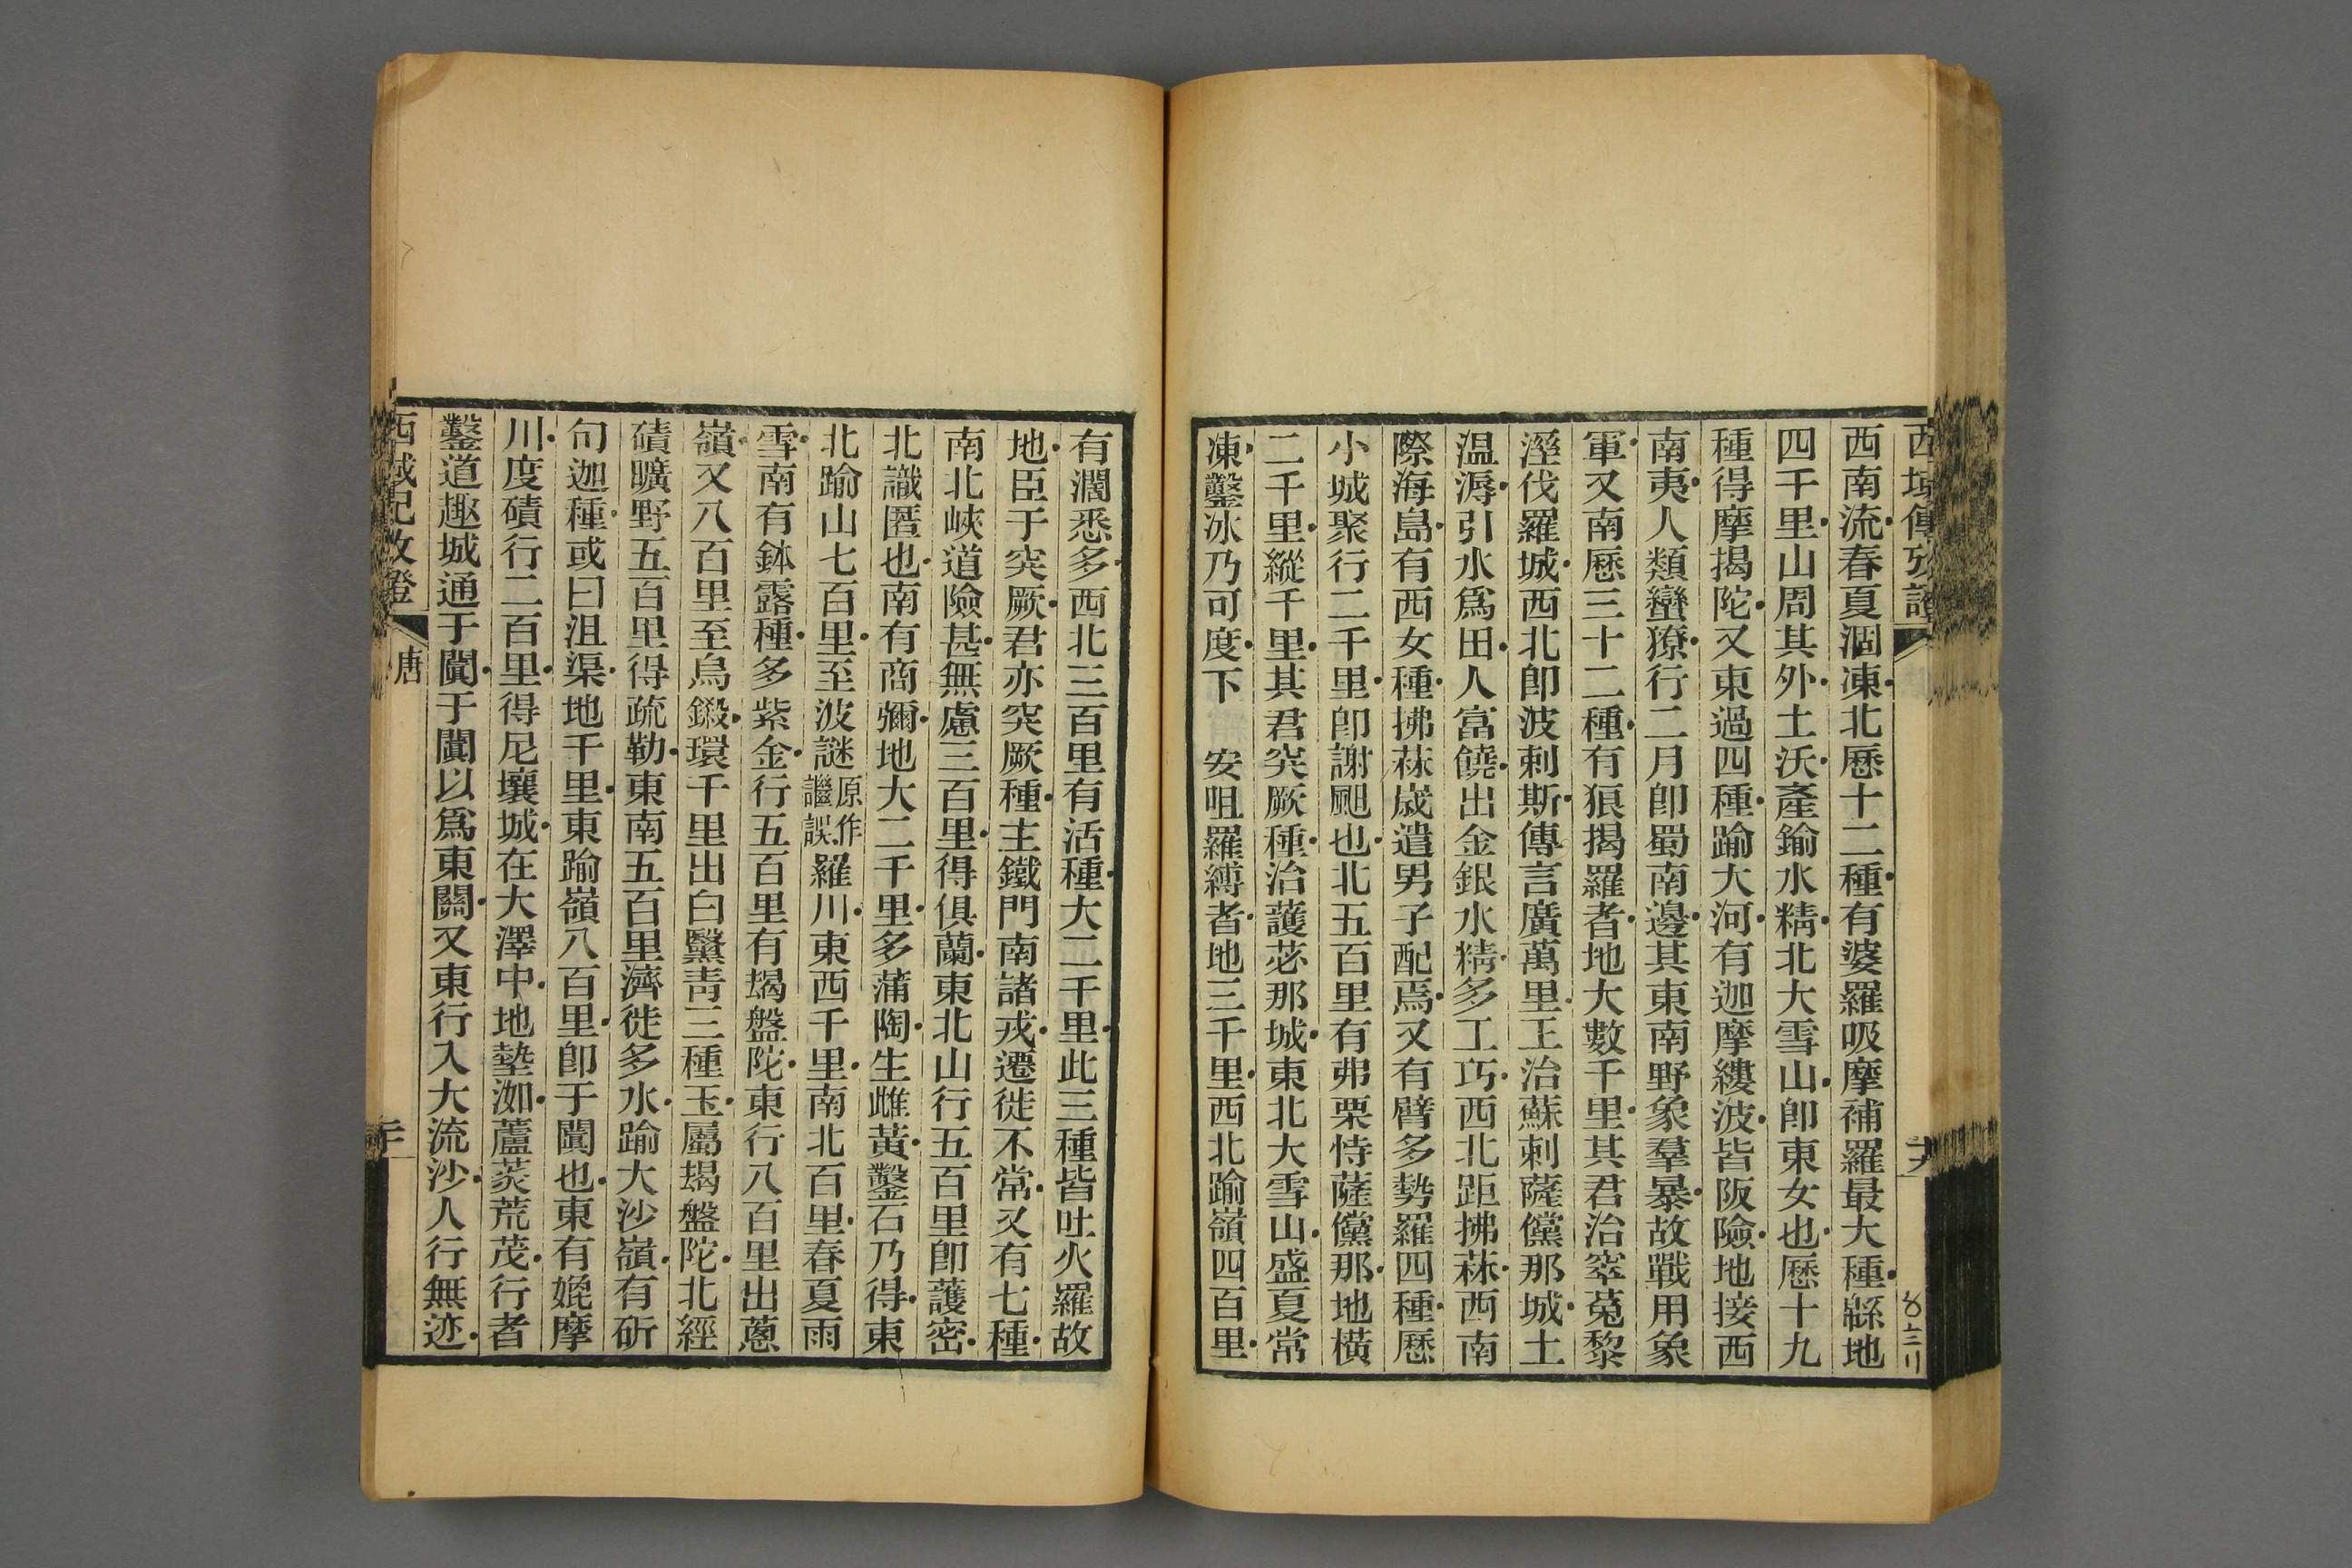 西域傳攷證
西南流春夏涸凍北歷十二種有婆羅吸摩補羅最大種緜地
四千里山周其外土沃產鍮水精北大雪山卽東女也歷十九
種得摩揭陀又東過四種踰大河有迦摩縷波皆阪險地接西
南夷人類蠻獠行二月卽蜀南邊其東南野象羣暴故戰用象
軍又南歷三十二種有狼揭羅者地大數千里其君治窣菟黎
溼伐羅城西北卽波剌斯傳言廣萬里王治蘇剌薩儻那城土
溫溽引水爲田人富饒出金銀水精多工巧西北距拂菻西南
際海島有西女種拂菻歲遣男子配焉又有臂多勢羅四種歷
小城聚行二千里卽謝䫻也北五百里有弗栗恃薩儻那地橫
二千里縱千里其君突厥種治護苾那城東北大雪山盛夏常
凍鑿冰乃可度下　安呾羅縛者地三千里西北踰嶺四百里
有濶悉多西北三百里有活種大二千里此三種皆吐火羅故
地臣于突厥君亦突厥種主鐵門南諸戎遷徙不常又有七種
南北峽道險甚無慮三百里得俱蘭東北山行五百里卽護密
北識匿也南有商彌地大二千里多蒲陶生雌黃鑿石乃得東
北踰山七百里至波謎原作謎誤羅川東西千里南北百里春夏雨
雪南有鉢露種多紫金行五百里有朅盤陀東行八百里出蔥
嶺又八百里至烏鎩環千里出白黳靑三種玉屬朅盤陀北經
磧曠野五百里得疏勒東南五百里濟徙多水踰大沙嶺有斫
句迦種或曰沮渠地千里東踰嶺八百里卽于闐也東有媲摩
川度磧行二百里得尼壤城在大澤中地墊洳蘆荻荒茂行者
鑿道趣城通于闐于闐以爲東關又東行入大流沙人行無迹
西域記攷證　唐